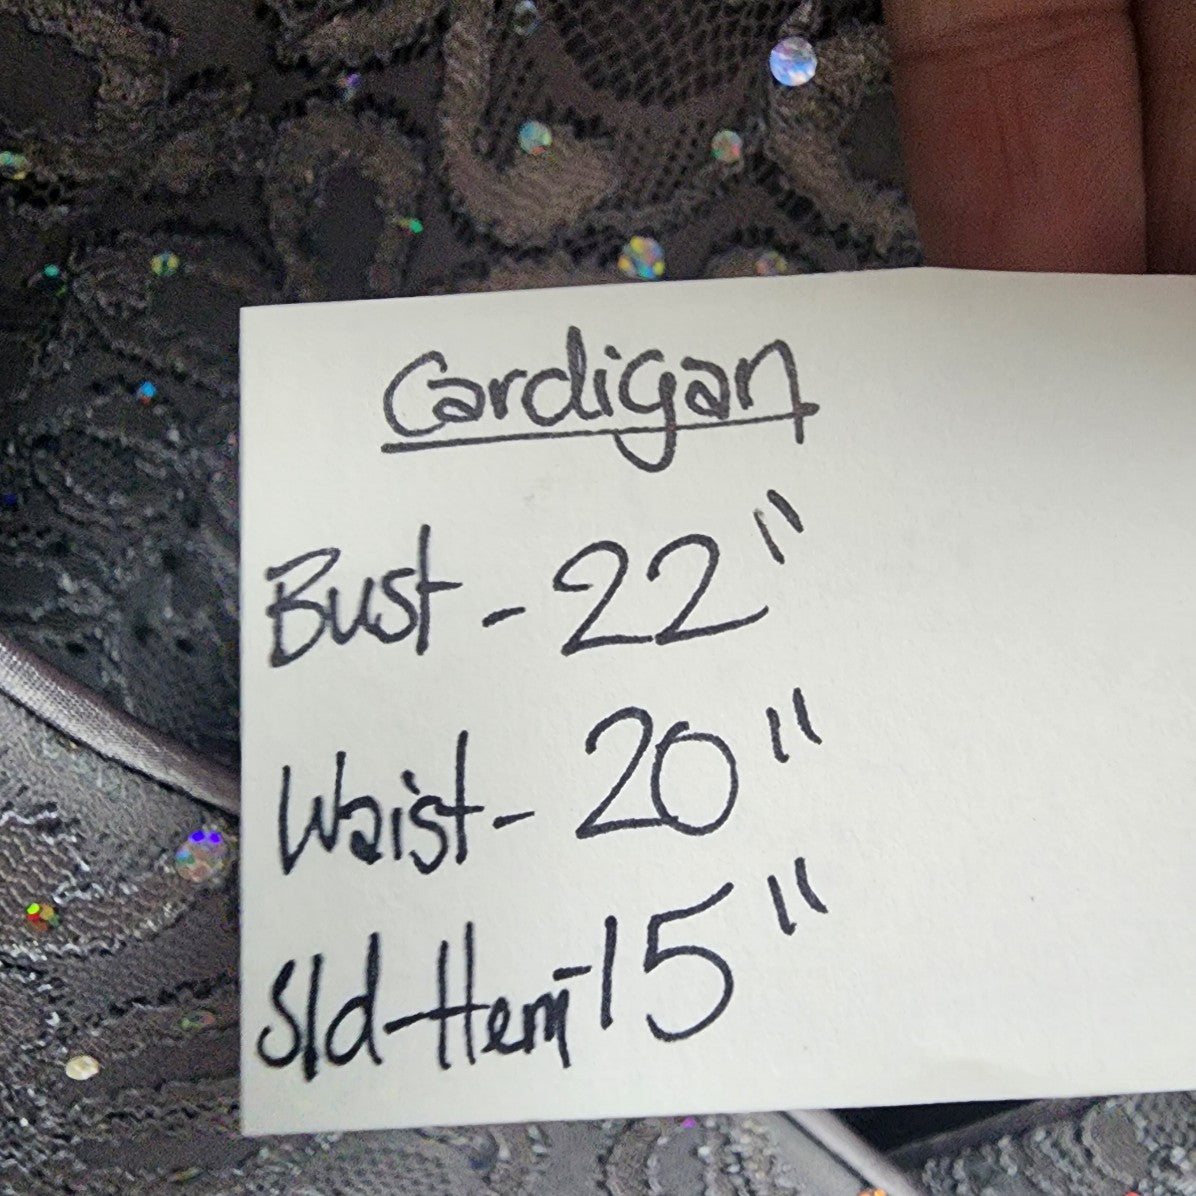 Cardigan
Bust - 22"
Waist - 20"
Sld-Hem-15"